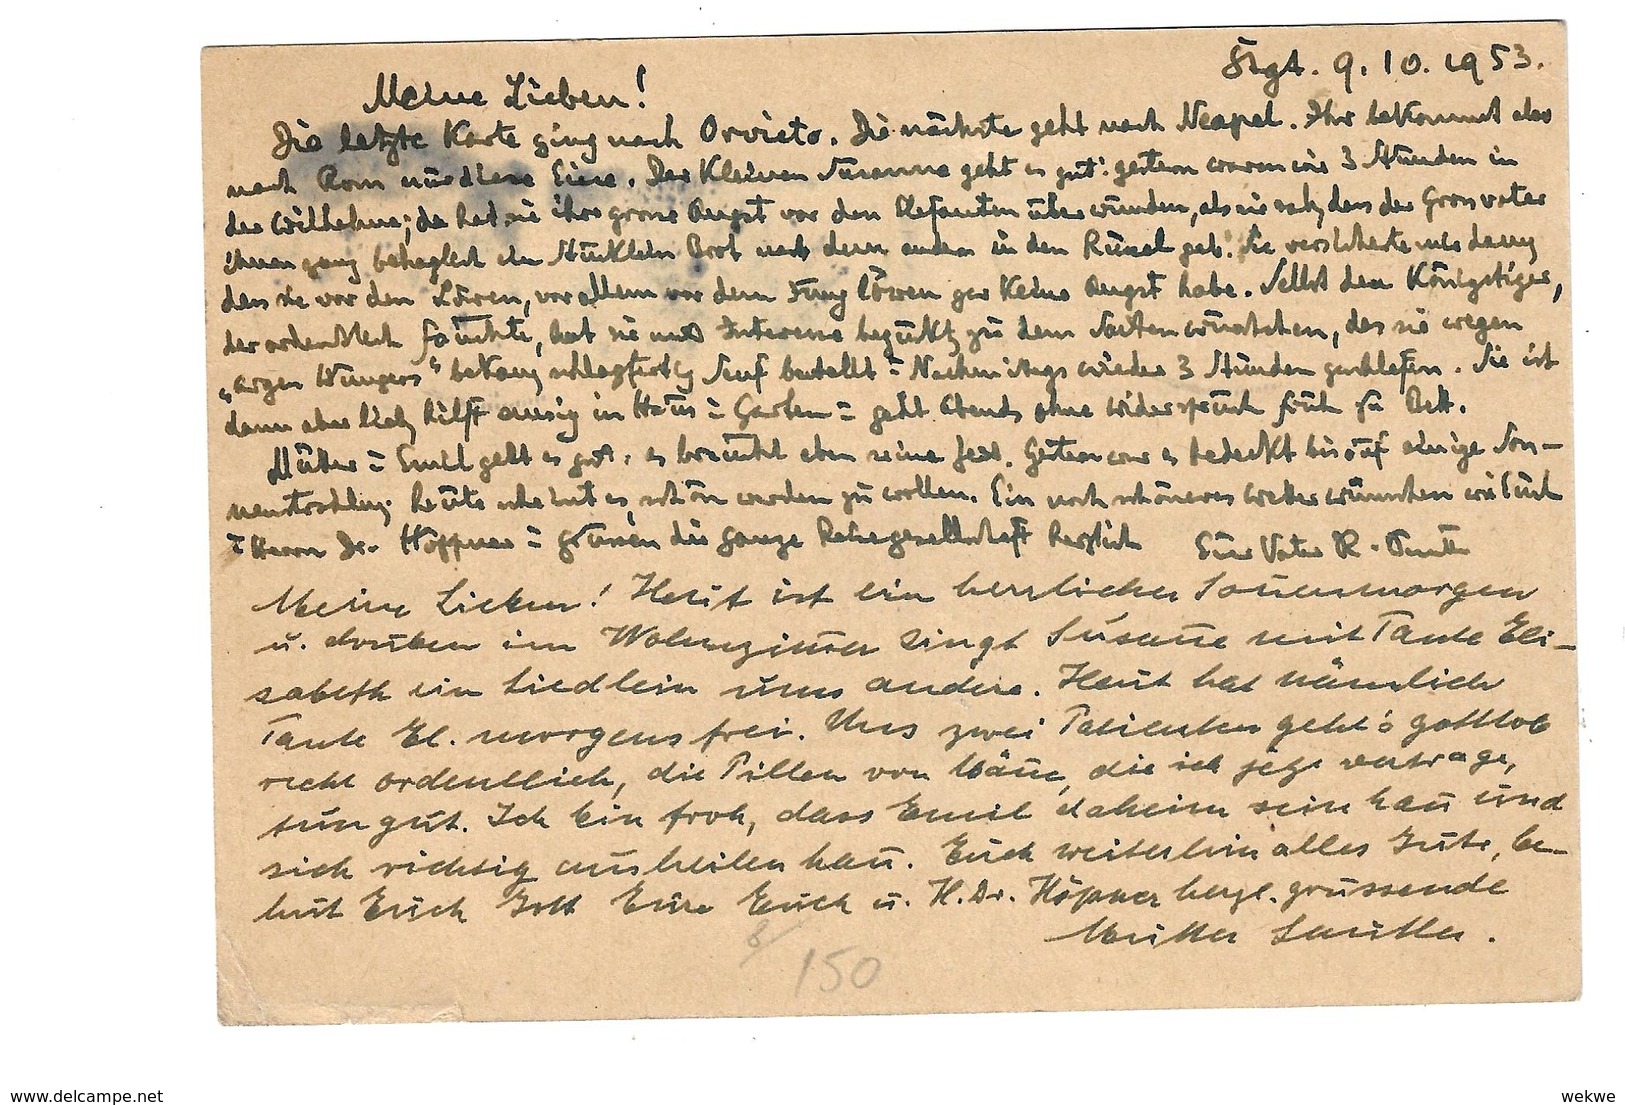 Stgt. 9. 10. 1953.
Meine Lieben!
Die letzte Karte ging nach Orvieto. Die nächste geht nach Neapel. Ihr bekommt also
nach Rom nur diese Eine. Der Kleinen Susanne geht es gut: gestern waren wir 3 Stunden in
der Wilhelma; da hat sie ihre grosse Angst vor den Elefanten überwunden, als sie sah, dass der Grossvater
ihnen ganz behaglich ein Stücklein Brot nach dem andern in den Rüssel gab. Sie versicherte uns dann,
dass sie vor den Löwen, vor allem vor dem Junglöwen gar keine Angst habe. Selbst den Königstiger,
der ordentlich fauchte, hat sie mit Interesse beguckt, zu dem Saitenwürstchen, das sie wegen
"argen Hungers" bekam, schlagfertig Senf bestellt & Nachmittags wieder 3 Stunden geschlafen. Sie ist
dann aber lieb, hilft emsig in Haus & Garten & geht Abends ohne Widerspruch früh zu Bett.
Mutter & Emil geht es gut, es braucht eben seine Zeit. Gestern war es bedeckt bis auf einige Son-
nenstrahlen; heute scheint es schön werden zu wollen. Ein noch schöneres Wetter wünschen wir Euch
& Herrn Dr. Höppner & grüssen die ganze Reisegesellschaft herzlich Euer Vater R. Sautter
Meine Lieben! Heut ist ein herrlicher Sonnenmorgen
u. drüben im Wohnzimmer singt Susanne mit Tante Eli-
sabeth ein Liedlein ums andere. Heut hat nämlich
Tante El. morgens frei. Uns zwei Patienten geht's gottlob
recht ordentlich, die Pillen von die ich jetzt vertrage,
tun gut. Ich bin froh, dass Emil daheim sein kann und
sich richtig ausheilen kann. Euch weiterhin alles Gute, be-
hüt Euch Gott Eure Euch u. H. Dr. Höppner herzl. grüssende
Mutter Sautter.
8/
150
www.delcampe.net
wekwe